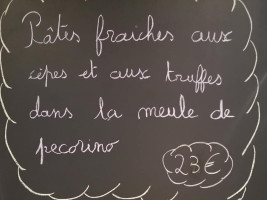 Pâtes fraiches aux
cèpes et aux truffes
dans la meule de
pecorino
23€